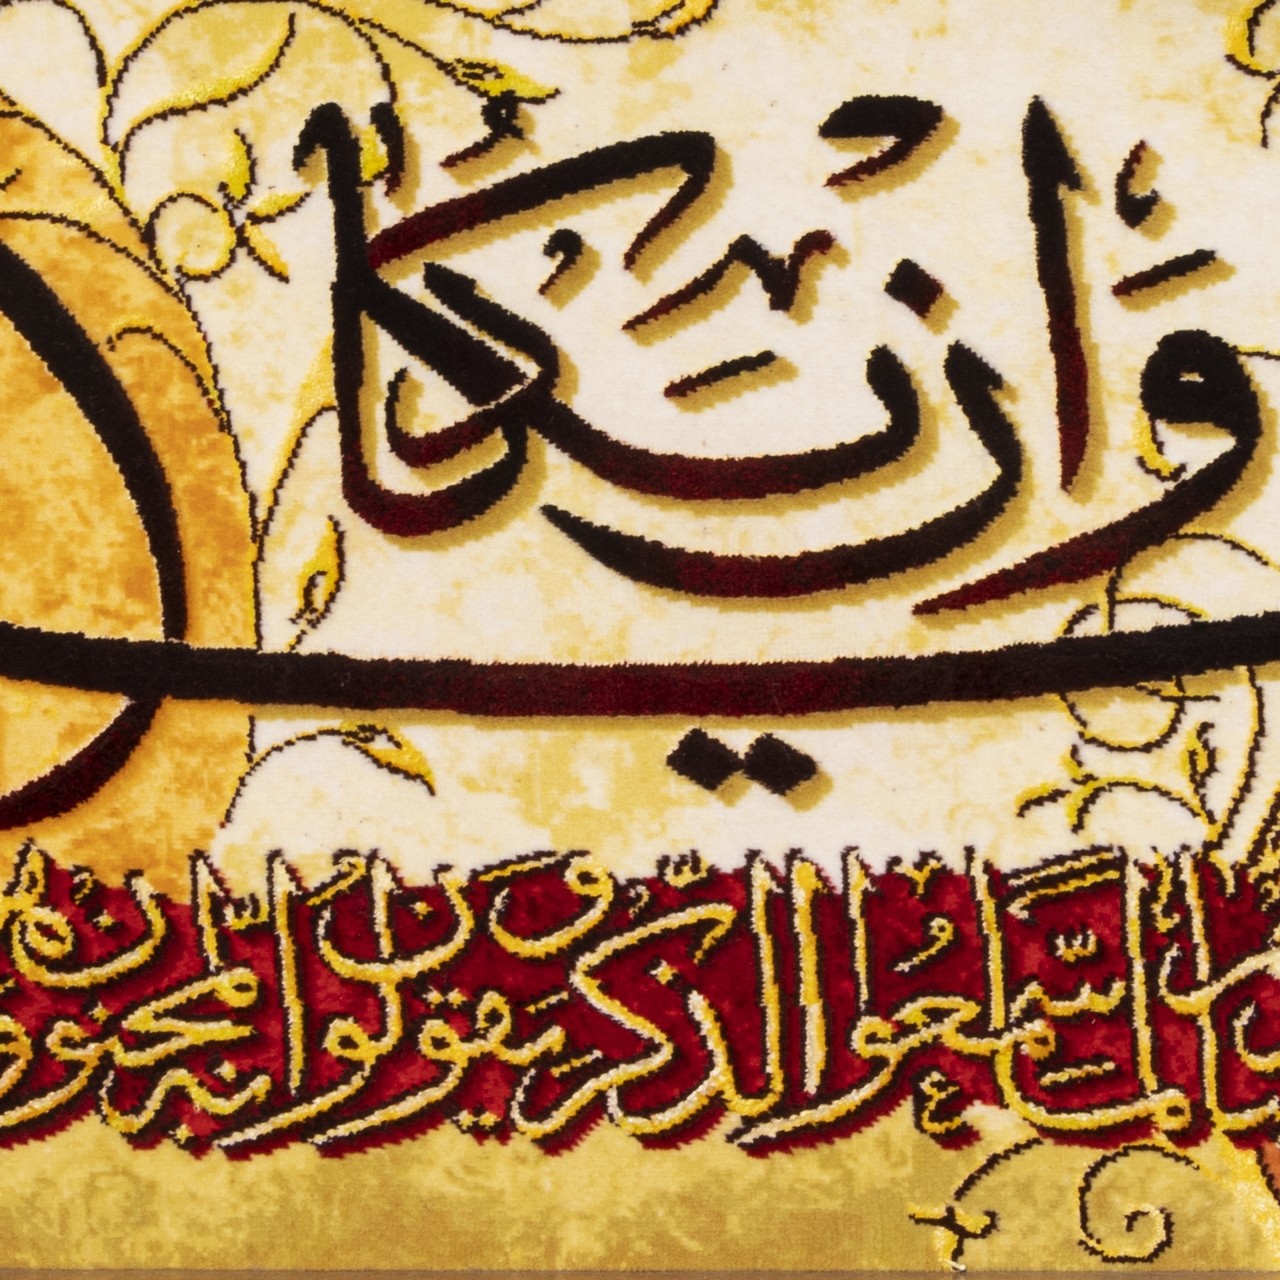 وَإن يَكا
لَمّا سَمِعُوا الذِّكرَ وَ يَقولونَ اِنَّهُ لَمَجنون